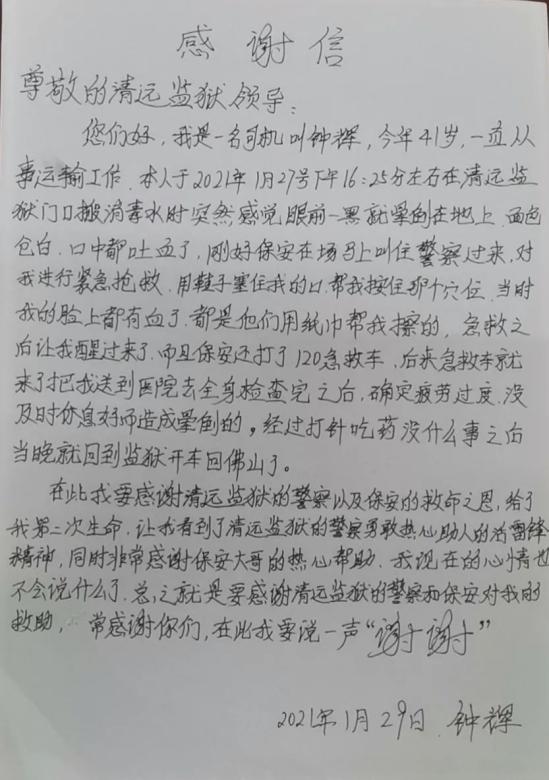 感谢信
尊敬的清远监狱领导：
您们好，我是一名司机叫钟辉，今年41岁，一直从
事运输工作．本人于2021年1月27号下午16：25分左右在清远监
狱门口搬消毒水时突然感觉眼前一黑就晕倒在地上．面色
仓白．口中都吐血了，刚好保安在场马上叫住警察过来，对
我进行紧急抢救．用鞋子塞住我的口．帮我按住那个穴位．当时
我的脸上都有血了．都是他们用纸巾帮我擦的．急救之
后让我醒过来了．而且保安还打了120急救车，后来急救车就
来了把我送到医院去全身检查完之后，确定疲劳过度．没
及时休息好而造成晕倒的，经过打针吃药没什么事之后
当晚就回到监狱开车回佛山了。
在此我要感谢清远监狱的警察以及保安的救命之恩，给了
我第二次生命，让我看到了清远监狱的警察勇敢热心助人的活雷锋
精神，同时非常感谢保安大哥的热心帮助．我现在的心情也
不会说什么了．总之就是要感谢清远监狱的警察和保安对我的
救助， 常感谢你们，在此我要说一声“谢谢”
2021年1月29日 钟辉